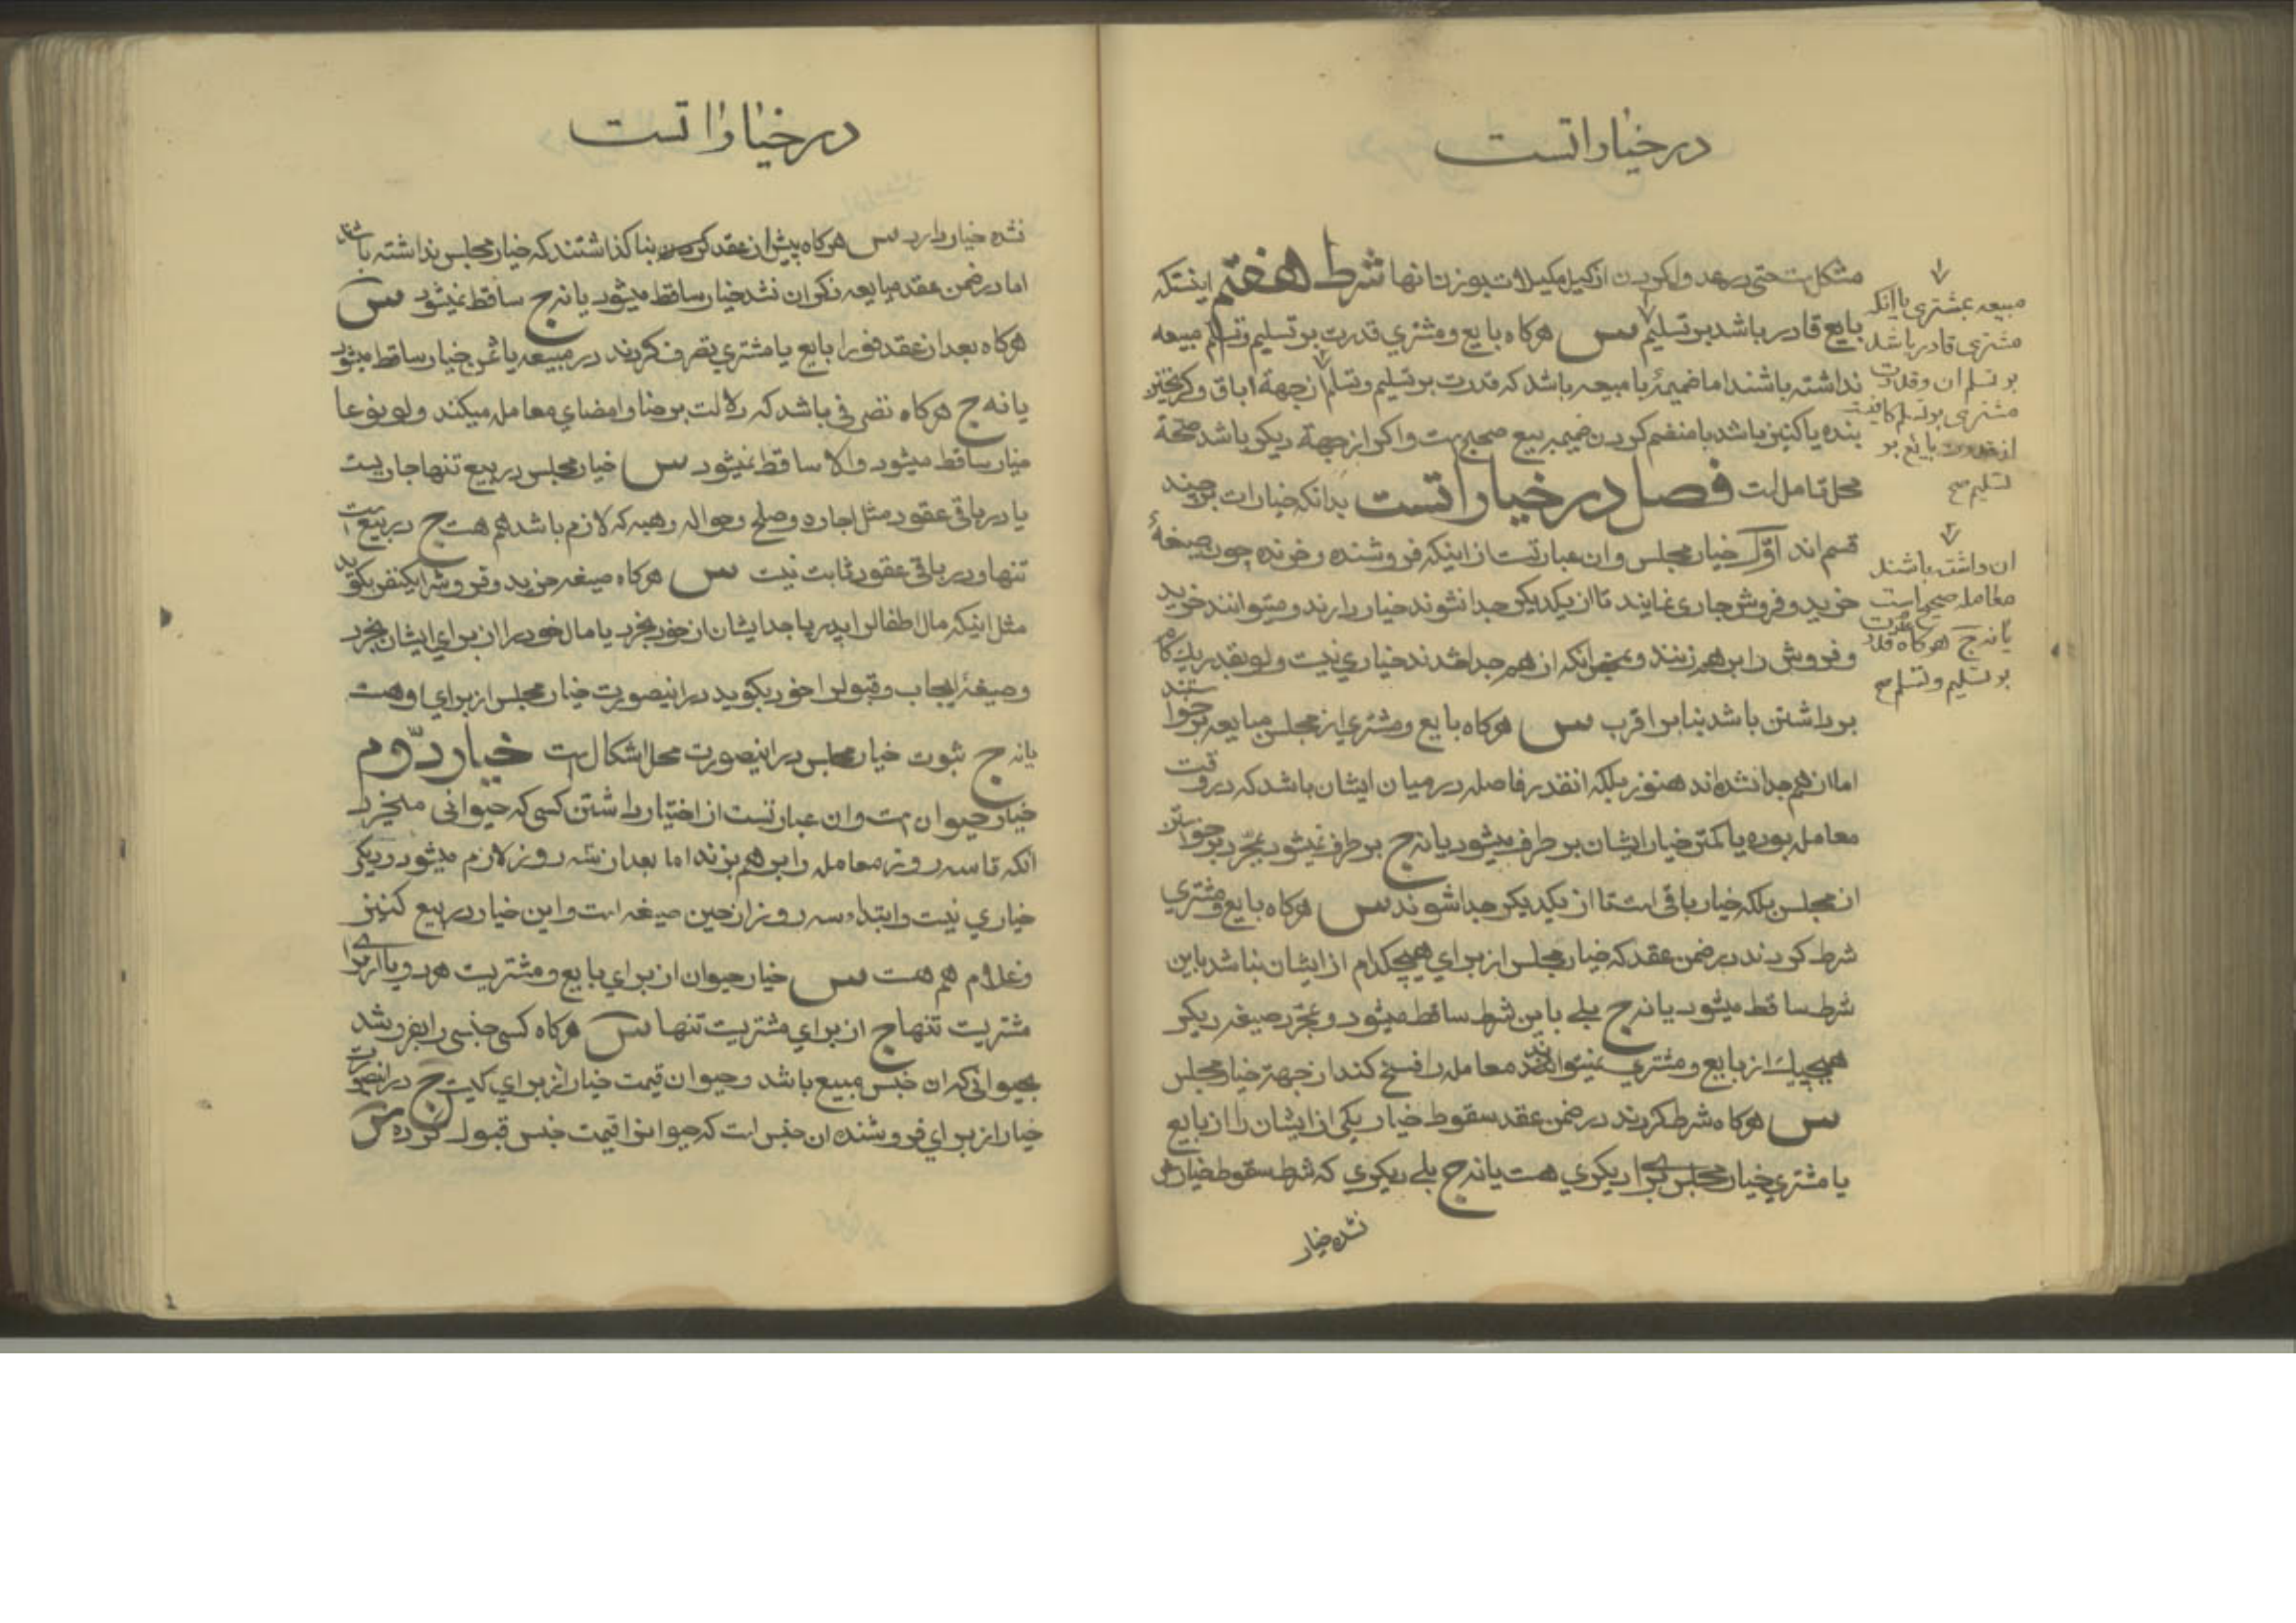 در خیارا تست
مشکلست حتی در عدد واکردن از کیل مکیلات بوزن انها شرط هفتم اینستکه
بایع قادر باشد بر تسلیم س هرکاه بایع و مشتري قدرت بر تسلیم و تسلم مبیعه
نداشته باشند اما ضمیمهٔ با مبیعه باشد که قدرت بر تسلیم و تسلم از جهة اباق و کریختن
بنده یا کنیز باشد با منضم کردن ضمیمه بیع صحیح است واکر از جهة دیکر باشد صحة
محل تامل است فصل در خیارا تست بدانکه خیارات بر چند
قسم اند اوّل خیار مجلس و ان عبارتست از اینکه فروشنده و خرنده چون صیغهٔ
خرید و فروش جاری نمایند تا از یکدیکر جدا نشوند خیار دارند و میتوانند خرید
و فروش را بر هم زنند و بمحض انکه از هم جدا شدند خیاري نیست و لو بقدر یك کام
برداشتن باشد بنابر اقرب س هرکاه بایع و مشتري از مجلس مبایعه برخواستند
اما از هم جدا نشده اند هنوز بلکه انقدر فاصله در میان ایشان باشد که در وقت
معامله بوده یا کمتر خیار ایشان بر طرف میشود یا نه ج بر طرف نمیشود بمجّرد برخواستن
از مجلس بلکه خیار باقی است تا از یکدیکر جدا شوند س هرکاه بایع و مشتري
شرط کردند در ضمن عقد که خیار مجلس از برای هیچکدام از ایشان نباشد باین
شرط ساقط میشود یا نه ج بلے باین شرط ساقط میشود و بمجّرد صیغه دیکر
هیچیك از بایع و مشتري نمیتوانند معامله را فسخ کند از جهة خیار مجلس
س هرکاه شرط کردند در ضمن عقد سقوط خیار یکی از ایشان را از بایع
یا مشتري خیار مجلس برای دیکري هست یا نه ج بلے دیکري که شرط سقوط خیارش
نشده خیار
مبیعه بمشتری یا انکه
مشتری قادر باشد
بر تسلم ان و قدرت
مشتری بر تسلم کافیست
از قدرت بایع بر
تسلیم صح
ان داشته باشند
معامله صحیح است
یا نه ج هرکاه قدرت
بر تسلیم و تسلم صح
در خیارا تست
نشده خیار دارد س هرکاه پیش از عقد کردن بنا کذاشتند که خیار مجلس نداشته باشند
اما در ضمن عقد مبایعه ذکر ان نشد خیار ساقط میشود یا نه ج ساقط نمیشود س
هرکاه بعد از عقد فورا بایع یا مشتري تصرف کردند در مبیعه یا ثمن خیار ساقط میشود
یا نه ج هرکاه تصرفی باشد که دلالت بر رضا و امضای معامله میکند ولو نوعا
خیار ساقط میشود والا ساقط نمیشود س خیار مجلس در بیع تنها جاریست
یا در باقی عقود مثل اجاره و صلح و حواله و هبه که لازم باشد هم هست ج در بیع است
تنها و در باقی عقود ثابت نیست س هرکاه صیغه خرید و فروش را یکنفر بکوید
مثل اینکه مال اطفال را پدر یا جد ایشان از خود بخرد یا مال خود را از برای ایشان بخرد
و صیغهٔ ایجاب و قبول را خود بکوید در اینصورت خیار مجلس از برای او هست
یا نه ج ثبوت خیار مجلس در اینصورت محل اشکال است خیار دوّم
خیار حیوان است و ان عبارتست از اختیار داشتن کسی که حیوانی میخرد
انکه تا سه روز معامله را بر هم بزند اما بعد از سه روز لازم میشود و دیکر
خیاري نیست و ابتداء سه روز از حین صیغه است و این خیار در بیع کنیز
و غلام هم هست س خیار حیوان از برای بایع و مشتریست هر دو یا از برای
مشتریست تنها ج از برای مشتریست تنها س هرکاه کسی جنسی را بفروشد
بحیوانی که ان جنس مبیع باشد و حیوان قیمت خیار از برای کیست ج در اینصورت
خیار از برای فروشنده ان جنس است که حیوانرا قیمت جنس قبول کرده س